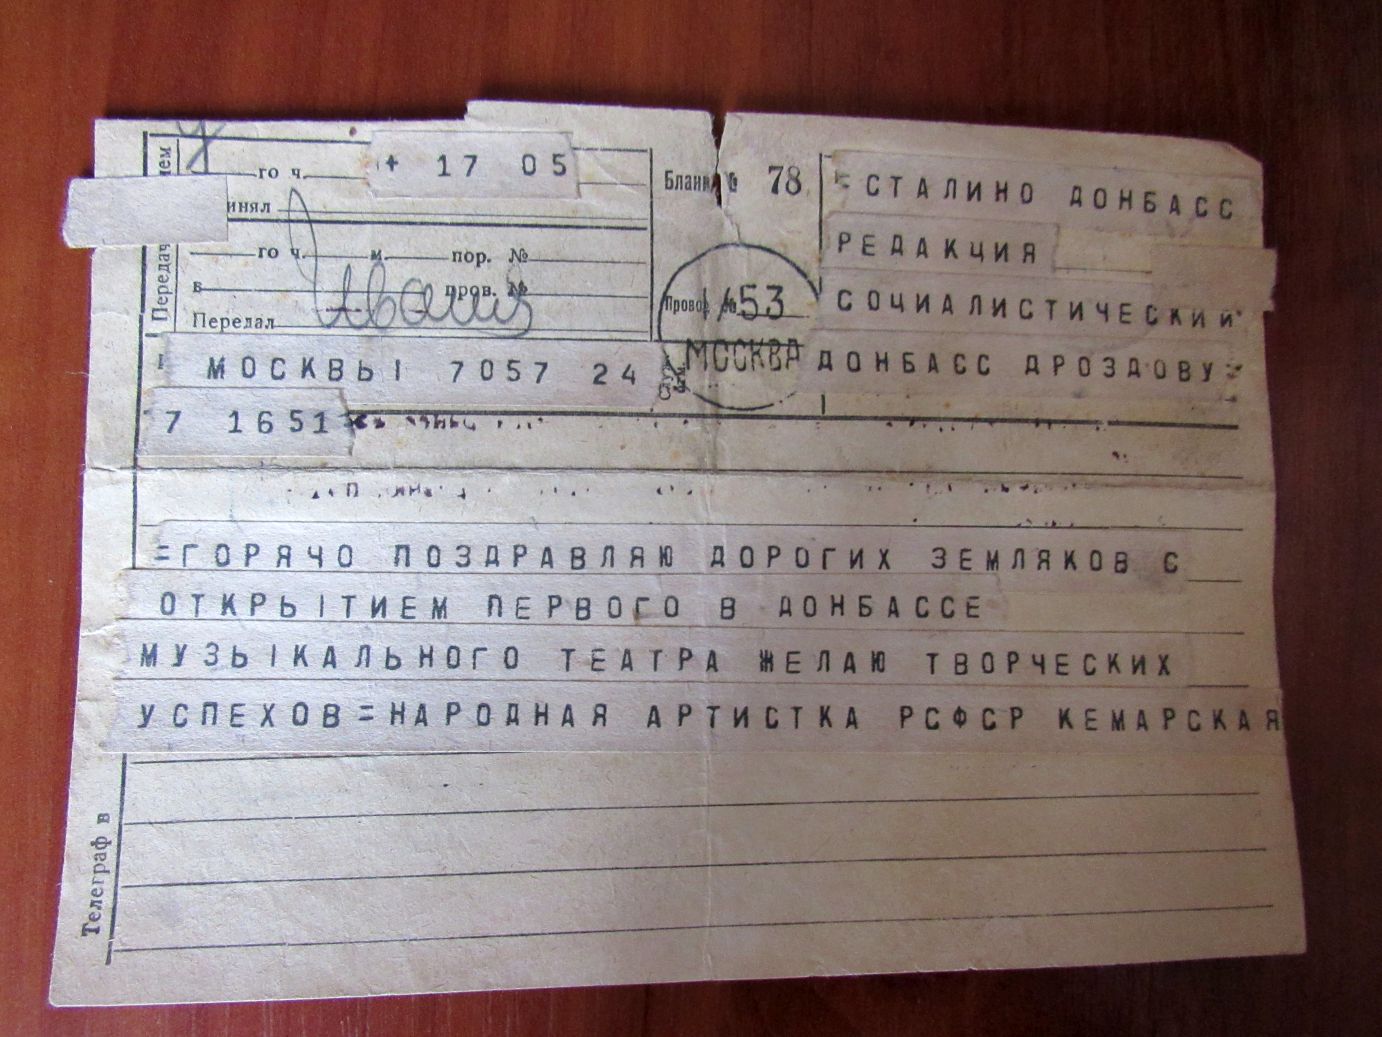 го ч.
+ 17 05
инял
го ч. м. пор. №
в пров. №
Передал
Бланк № 78
Провод № 1/453
МОСКВА
=СТАЛИНО ДОНБАСС
РЕДАКЦИЯ
СОЦИАЛИСТИЧЕСКИЙ
ДОНБАСС ДРОЗДОВУ=
МОСКВЫ 7057 24
7 1651
=ГОРЯЧО ПОЗДРАВЛЯЮ ДОРОГИХ ЗЕМЛЯКОВ С
ОТКРЫТИЕМ ПЕРВОГО В ДОНБАССЕ
МУЗЫКАЛЬНОГО ТЕАТРА ЖЕЛАЮ ТВОРЧЕСКИХ
УСПЕХОВ=НАРОДНАЯ АРТИСТКА РСФСР КЕМАРСКАЯ
Телеграф в